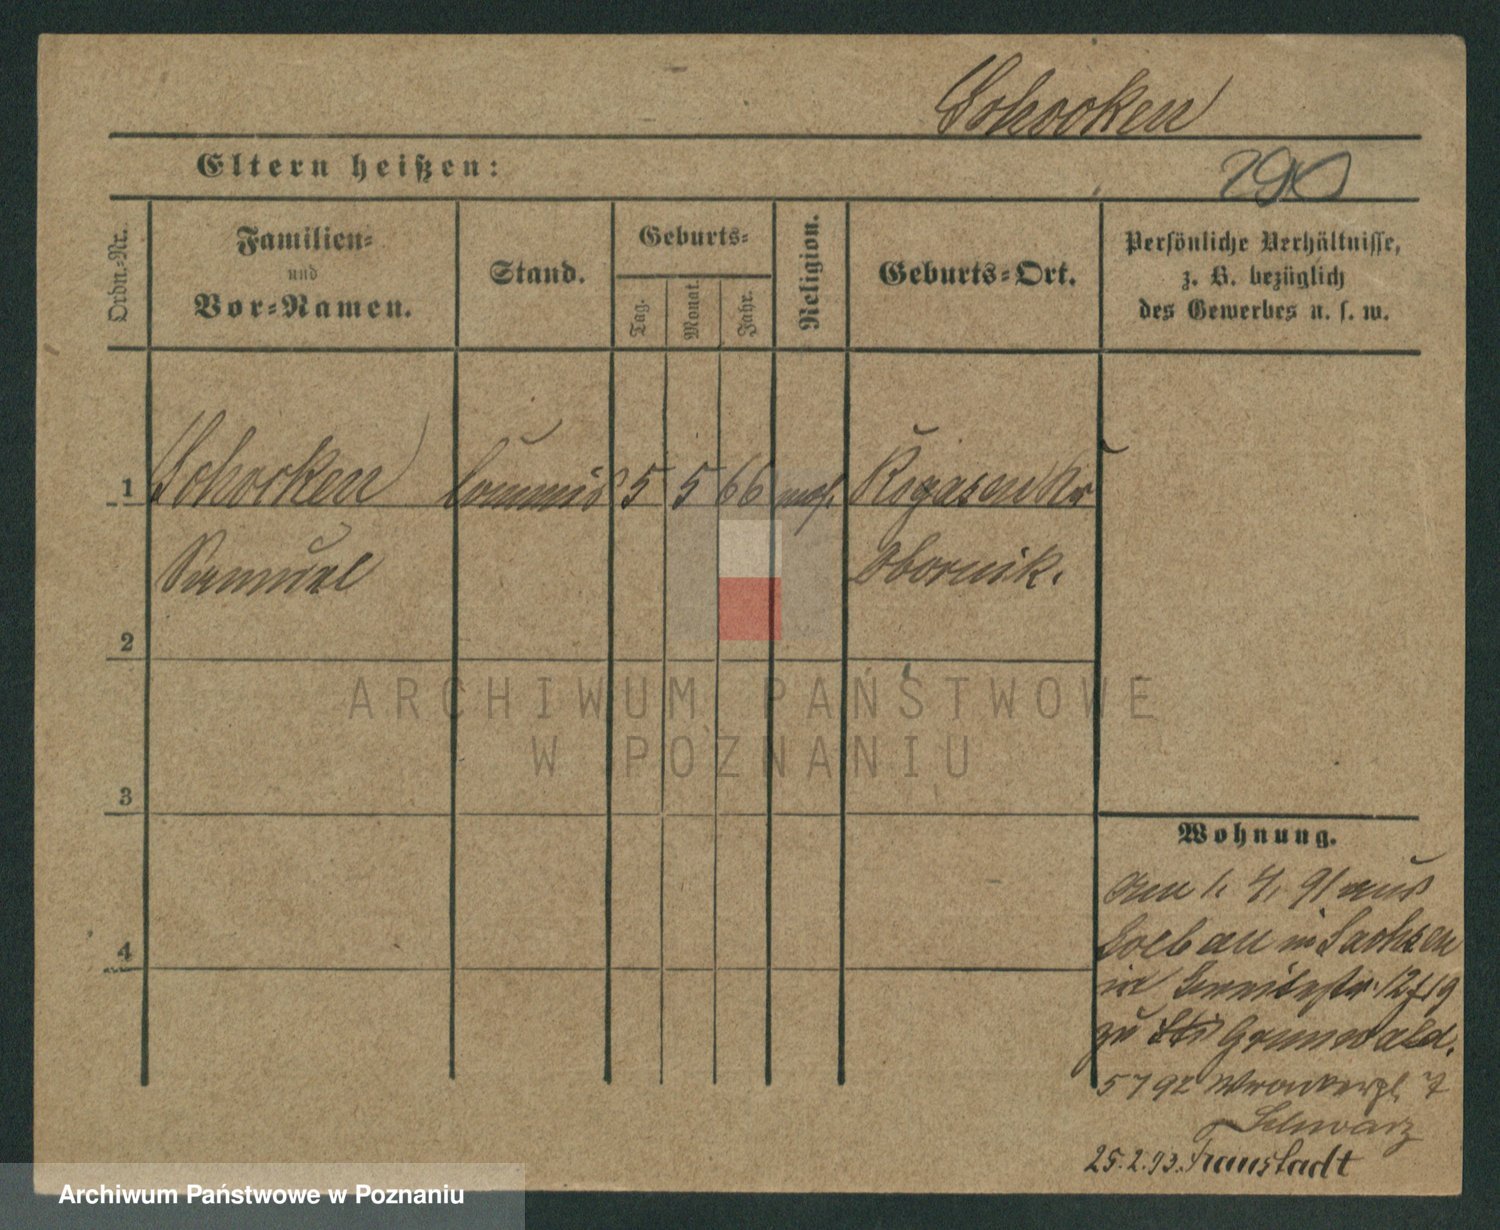 Schocken
290
Eltern heißen:
Ordn.-Nr.
Familien-
und
Vor-Namen.
Stand.
Geburts-
Tag.
Monat.
Jahr.
Religion.
Geburts-Ort.
Persönliche Verhältnisse,
z. B. bezüglich
des Gewerbes u. s. w.
1 Schocken Commis 5 5 66 mos. Rogasen Kr
Samuel Obornik.
2
3
4
ARCHIWUM PAŃSTWOWE
W POZNANIU
Wohnung.
Am 1. 4. 91 aus
Loebau in Sachsen
in 12/19
zu Grunwald.
5 7 92 Wronkerpl. 7
Schwarz
25.2.93. Fraustadt
Archiwum Państwowe w Poznaniu